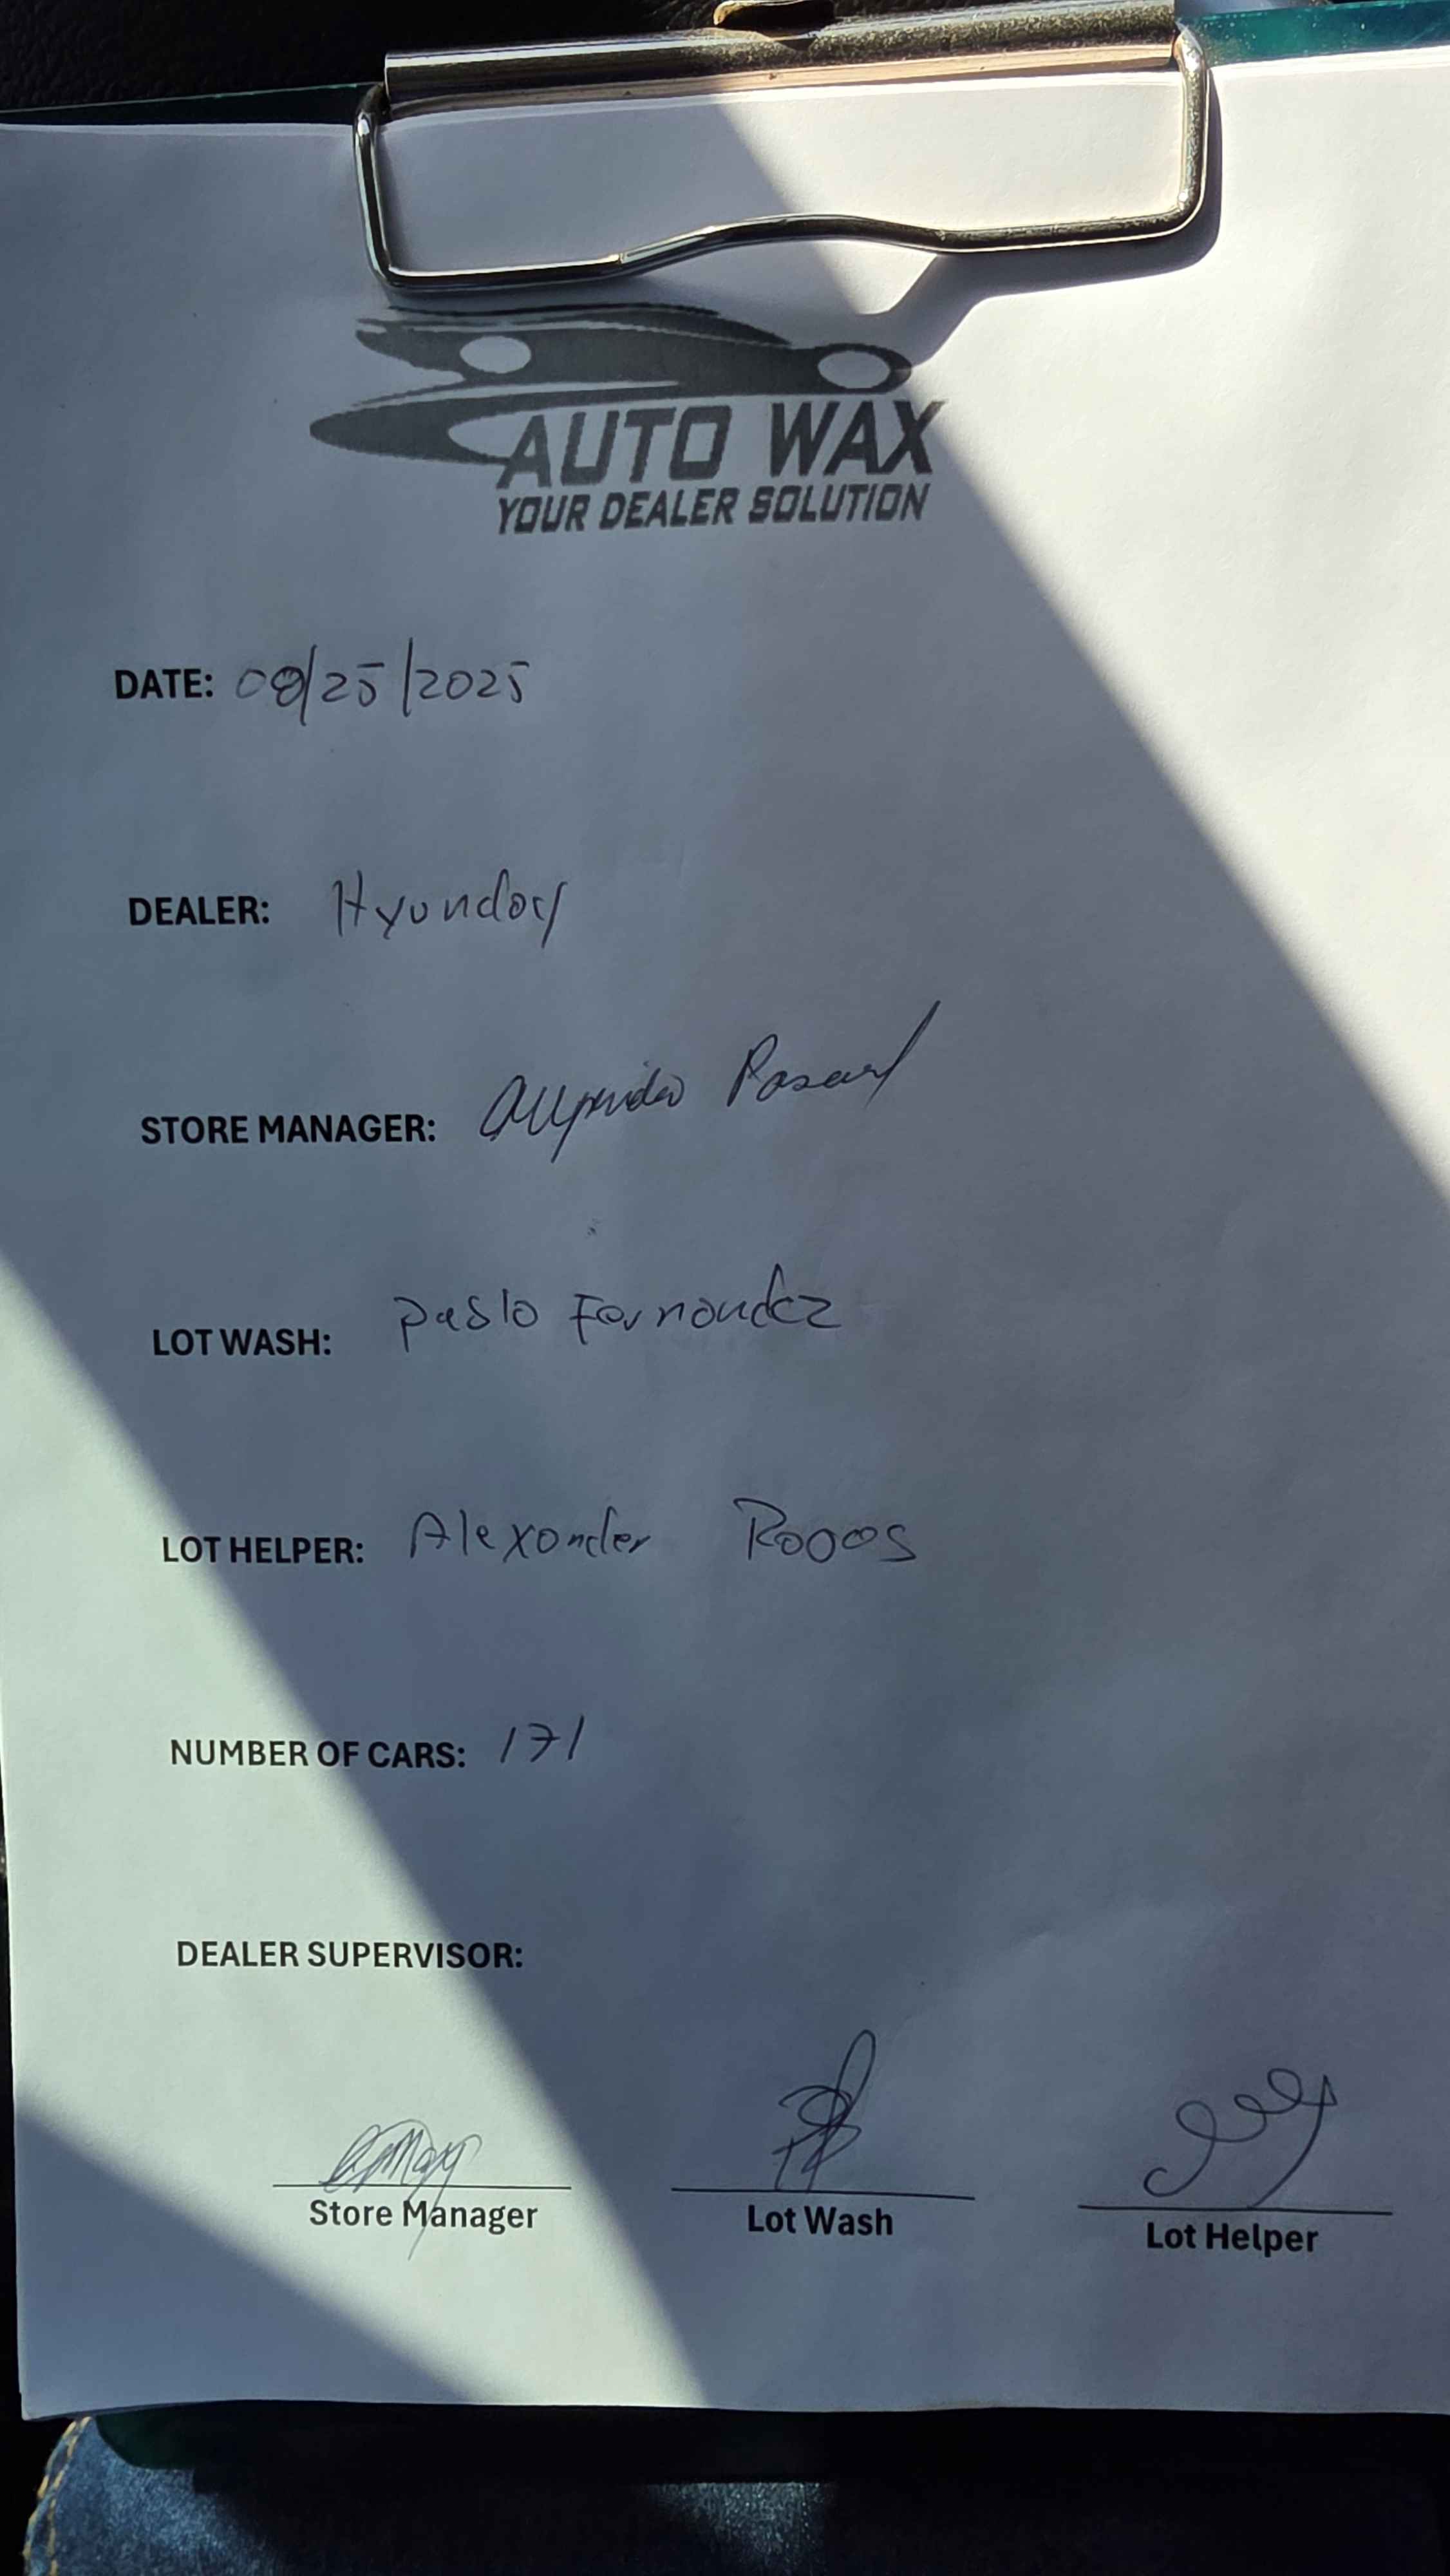 AUTO WAX
YOUR DEALER SOLUTION
DATE: 08/25/2025
DEALER: Hyunday
STORE MANAGER:
LOT WASH: Pablo Fernandez
LOT HELPER: Alexander
NUMBER OF CARS: 171
DEALER SUPERVISOR:
Store Manager Lot Wash Lot Helper